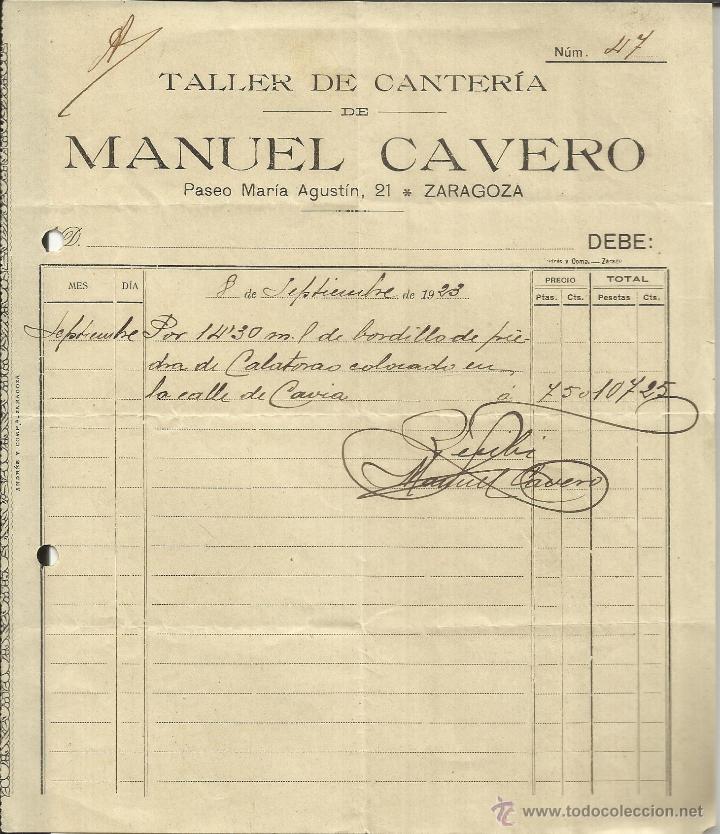 A
Núm. 47
TALLER DE CANTERÍA
DE
MANUEL CAVERO
Paseo María Agustín, 21 * ZARAGOZA
D. DEBE:
y Comp. — Zarag
MES DÍA 8 de Septiembre de 1923 PRECIO TOTAL
Ptas. Cts. Pesetas Cts.
Septiembre Por 14'30 m. l de bordillo de pie-
dra de Calatorao colocado en
la calle de Cavia á 7 50 107 25
Recibi
Manuel Cavero
ANDRÉS Y COMP.ª, ZARAGOZA
www.todocoleccion.net